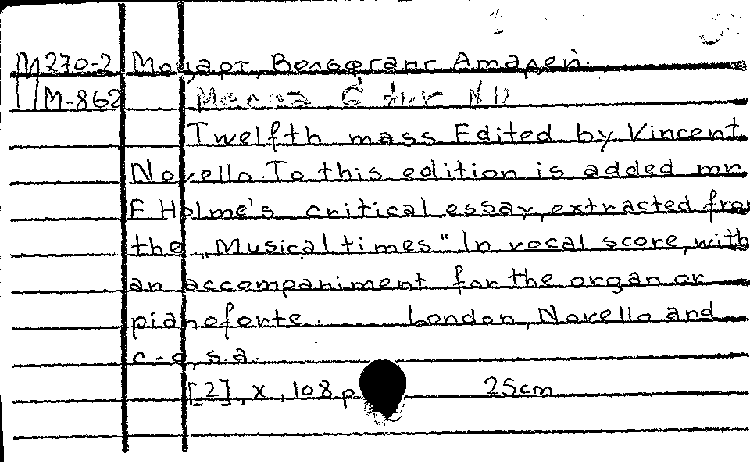 M270-2 Моцарт, Вольфганг Амадей.
M-862 Месса
Twelfth mass Edited by Vincent
Novello To this edition is added mr
E Holme's critical essay, extracted from
the „Musical times" In vocal score, with
an accompaniment for the organ or
pianoforte. London, Novello and
c-o, s.a.
[2], x, 108 p 25cm